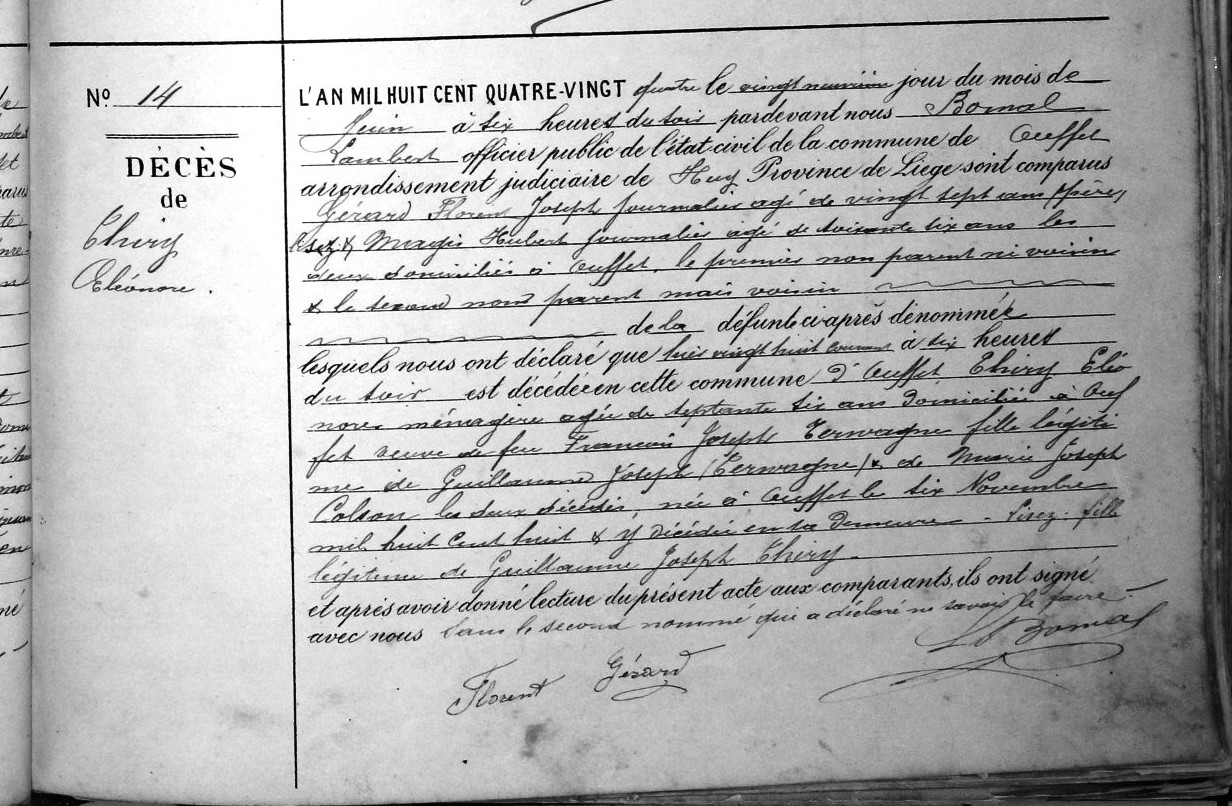 No 14
DÉCÈS
de
Thiry
Eléonore.
L'AN MIL HUIT CENT QUATRE-VINGT quatre le vingt neuvième jour du mois de
Juin à six heures du soir pardevant nous Bomal
Lambert officier public de l'état civil de la commune de Ouffet
arrondissement judiciaire de Huy Province de Liege sont comparus
Gérard Florent Joseph journalier agé de vingt sept ans
& Magis Hubert journalier agé de soixante six ans les
deux domiciliés à Ouffet, le premier non parent ni voisin
& le second non parent mais voisin
de la défunte ci-après dénommée
lesquels nous ont déclaré que hier vingt huit courant à six heures
du soir est décédée en cette commune d'Ouffet Thiry Eléo
nore ménagère agée de septante six ans domiciliée à Ouf
fet veuve de feu François Joseph Terwagne fille légiti
me de Guillaume Joseph (Terwagne) & de Marie Joseph
Colson les deux décédés, née à Ouffet le six Novembre
mil huit cent huit & y décédée en sa demeure. Lisez: fille
légitime de Guillaume Joseph Thiry.
et après avoir donné lecture du présent acte aux comparants, ils ont signé
avec nous sauf le second nommé qui a déclaré ne savoir le faire.
Florent Gérard
Lt Bomal